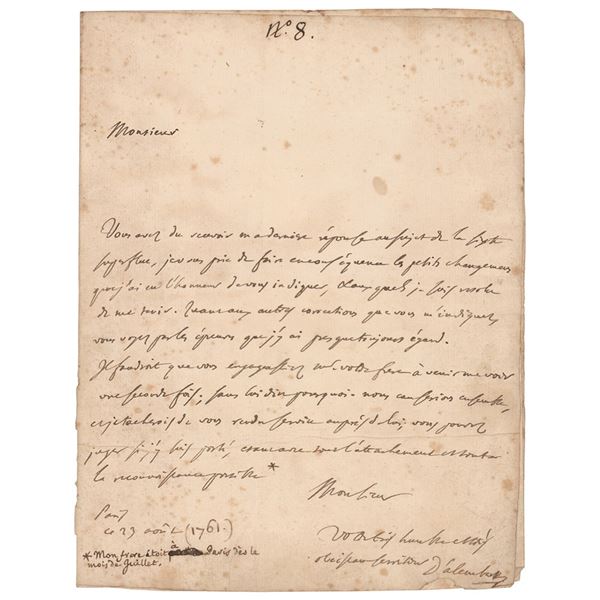 N.o 8.
Monsieur
Vous avez du recevoir ma derniere réponse au sujet de la sixte
superflue, je vous prie de faire en conséquence les petits changemens
que j'ai eu l'honneur de vous indiquer, & auxquels je suis resolu
de me tenir. Quant aux autres corrections que vous m'indiquez,
vous voyez par les épreuves que j'y ai presque toujours égard.
Il faudroit que vous engageassiez mr votre frere à venir me voir
une seconde fois, sans lui dire pourquoi. nous causerions ensemble,
et je tacherois de vous rendre service auprès de lui; vous pouvez
juger si j'y suis porté, connaissant l'attachement et toute
la reconnoissance possible *
Monsieur
Paris
ce 23 août (1761.)
votre très humble & très
obeissant serviteur D'alembert
* Mon frere étoit à Paris dès le
mois de Juillet.